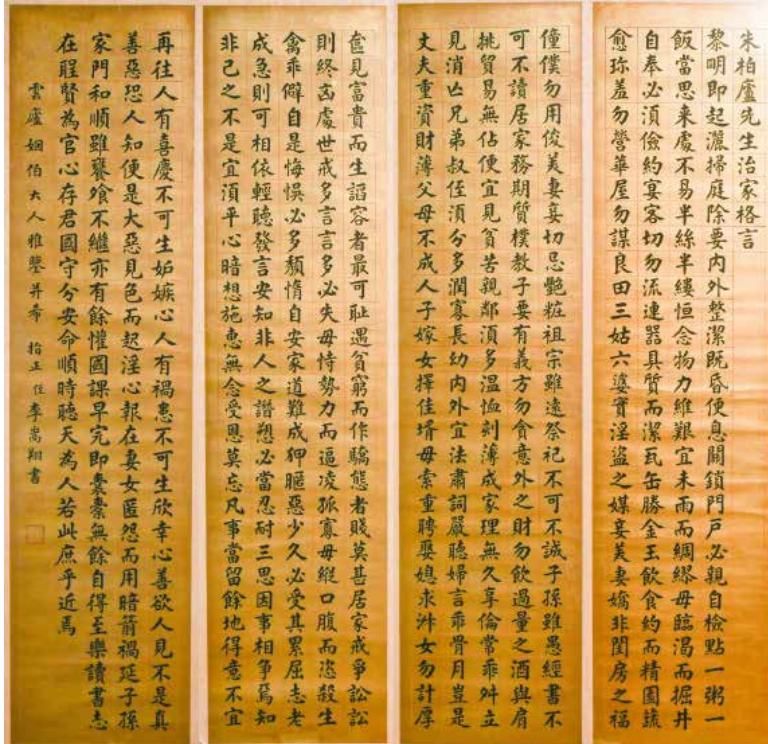 朱柏廬先生治家格言
黎明即起灑掃庭除要內外整潔既昏便息關鎖門戶必親自檢點一粥一
飯當思来處不易半絲半縷恒念物力維艱宜未雨而綢繆毋臨渴而掘井
自奉必須儉約宴客切勿流連器具質而潔瓦缶勝金玉飲食約而精園蔬
愈珎羞勿營華屋勿謀良田三姑六婆實淫盜之媒妾美妻嬌非閨房之福
僮僕勿用俊美妻妾切忌艷粧祖宗雖遠祭祀不可不誠子孫雖愚經書不
可不讀居家務期質樸教子要有義方勿貪意外之財勿飲過量之酒與肩
挑貿易無佔便宜見貧苦親鄰須多溫恤刻薄成家理無久享倫常乖舛立
見消亡兄弟叔侄須分多潤寡長幼內外宜法肅詞嚴聽婦言乖骨肉豈是
丈夫重資財薄父母不成人子嫁女擇佳壻毋索重聘娶媳求淑女勿計厚
奩見富貴而生諂容者最可恥遇貧窮而作驕態者賤莫甚居家戒爭訟訟
則終凶處世戒多言言多必失毋恃勢力而逼凌孤寡毋縱口腹而恣殺生
禽乖僻自是悔悞必多頹惰自安家道難成狎暱惡少久必受其累屈志老
成急則可相依輕聽發言安知非人之譖愬必當忍耐三思因事相爭焉知
非己之不是宜須平心暗想施惠無念受恩莫忘凡事當留餘地得意不宜
再往人有喜慶不可生妒嫉心人有禍患不可生欣幸心善欲人見不是真
善惡恐人知便是大惡見色而起淫心報在妻女匿怨而用暗箭禍延子孫
家門和順雖饔飧不繼亦有餘懽國課早完即囊橐無餘自得至樂讀書志
在聖賢為官心存君國守分安命順時聽天為人若此庶乎近焉
雲廬姻伯大人雅鑒并希 指正 侄李嵩翔書